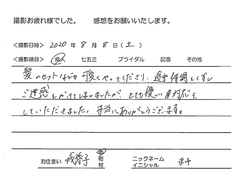 撮影お疲れ様でした。 感想をお願いいたします。
<撮影日時> 2020 年 8 月 8 日 (土)
<撮影項目> 成人 七五三 ブライダル 記念 その他
髪のセットなどの可愛くやってくださり、途中体調くずし
ご迷惑しかけてしまいましたが、とても優しい対応を
していただきました。本当にありがとうございます。
お住まい 我孫子 市 町 村 ニックネーム イニシャル